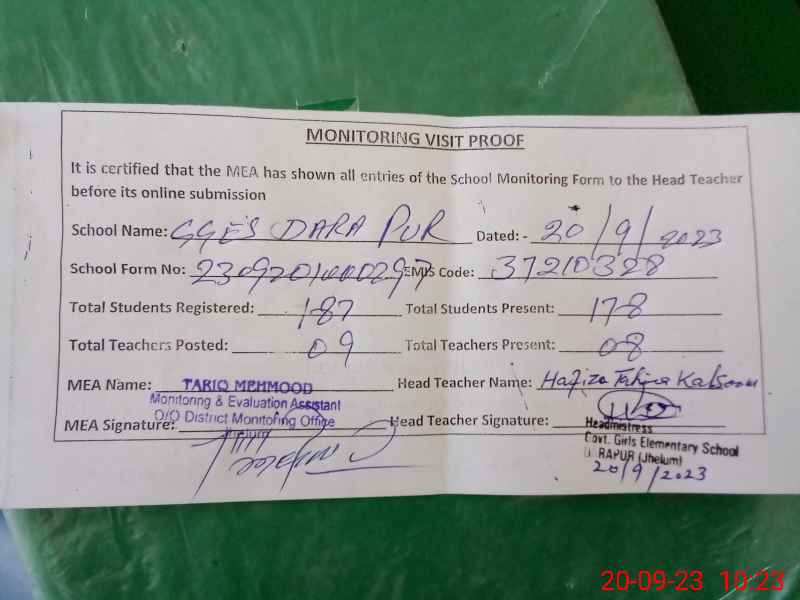 MONITORING VISIT PROOF
It is certified that the MEA has shown all entries of the School Monitoring Form to the Head Teacher
before its online submission
School Name: GGES DARA PUR Dated: - 20/9/2023
School Form No: 230920100029 EMIS Code: 37210328
Total Students Registered: 187 Total Students Present: 178
Total Teachers Posted: 09 Total Teachers Present: 08
MEA Name: TARIQ MEHMOOD Head Teacher Name: Hafiza Tahira Kalsoom
Monitoring & Evaluation Assistant
MEA Signature: O/O District Monitoring Office Head Teacher Signature:
Jhelum
Headmistress
Govt. Girls Elementary School
RAPUR (Jhelum)
20/9/2023
20-09-23 10:23